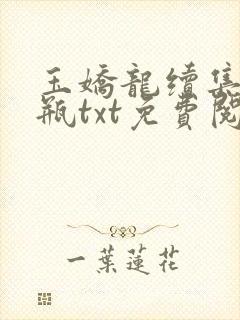 玉嬌龍續集
瓶txt免費閱
一葉蓮花